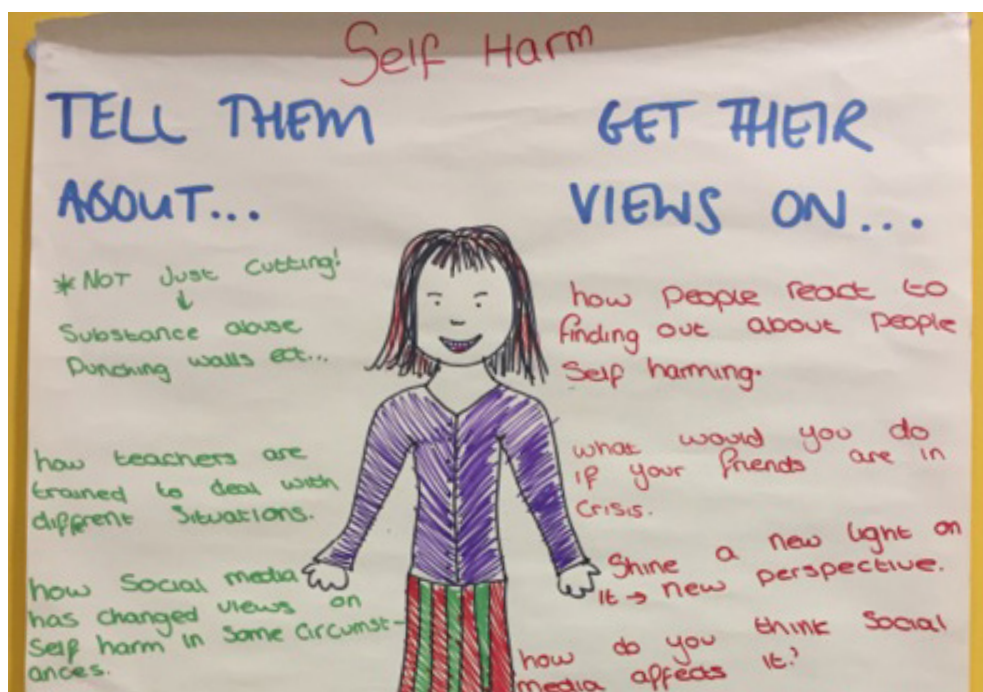 Self Harm
TELL THEM
ABOUT...
*NOT Just Cutting!
↓
Substance abuse
Punching walls ect...
how teachers are
trained to deal with
different Situations.
how Social media
has changed views on
Self harm in Some Circumst-
ances.
GET THEIR
VIEWS ON...
how people react to
finding out about people
Self harming.
what would you do
if your friends are in
Crisis.
Shine a new light on
it → new perspective.
how do you think Social
media affects it?